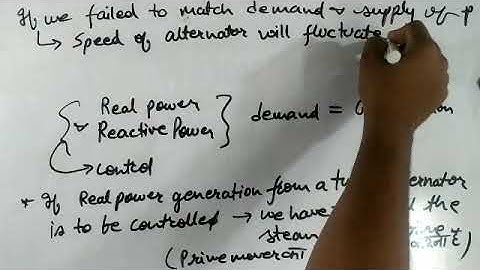 If we failed to match demand & supply of P
↳ Speed of alternator will fluctuate
Real power
& Reactive Power
demand =
→ control
* If Real power generation from a
is to be controlled → we have the
steam
(Prime mover का